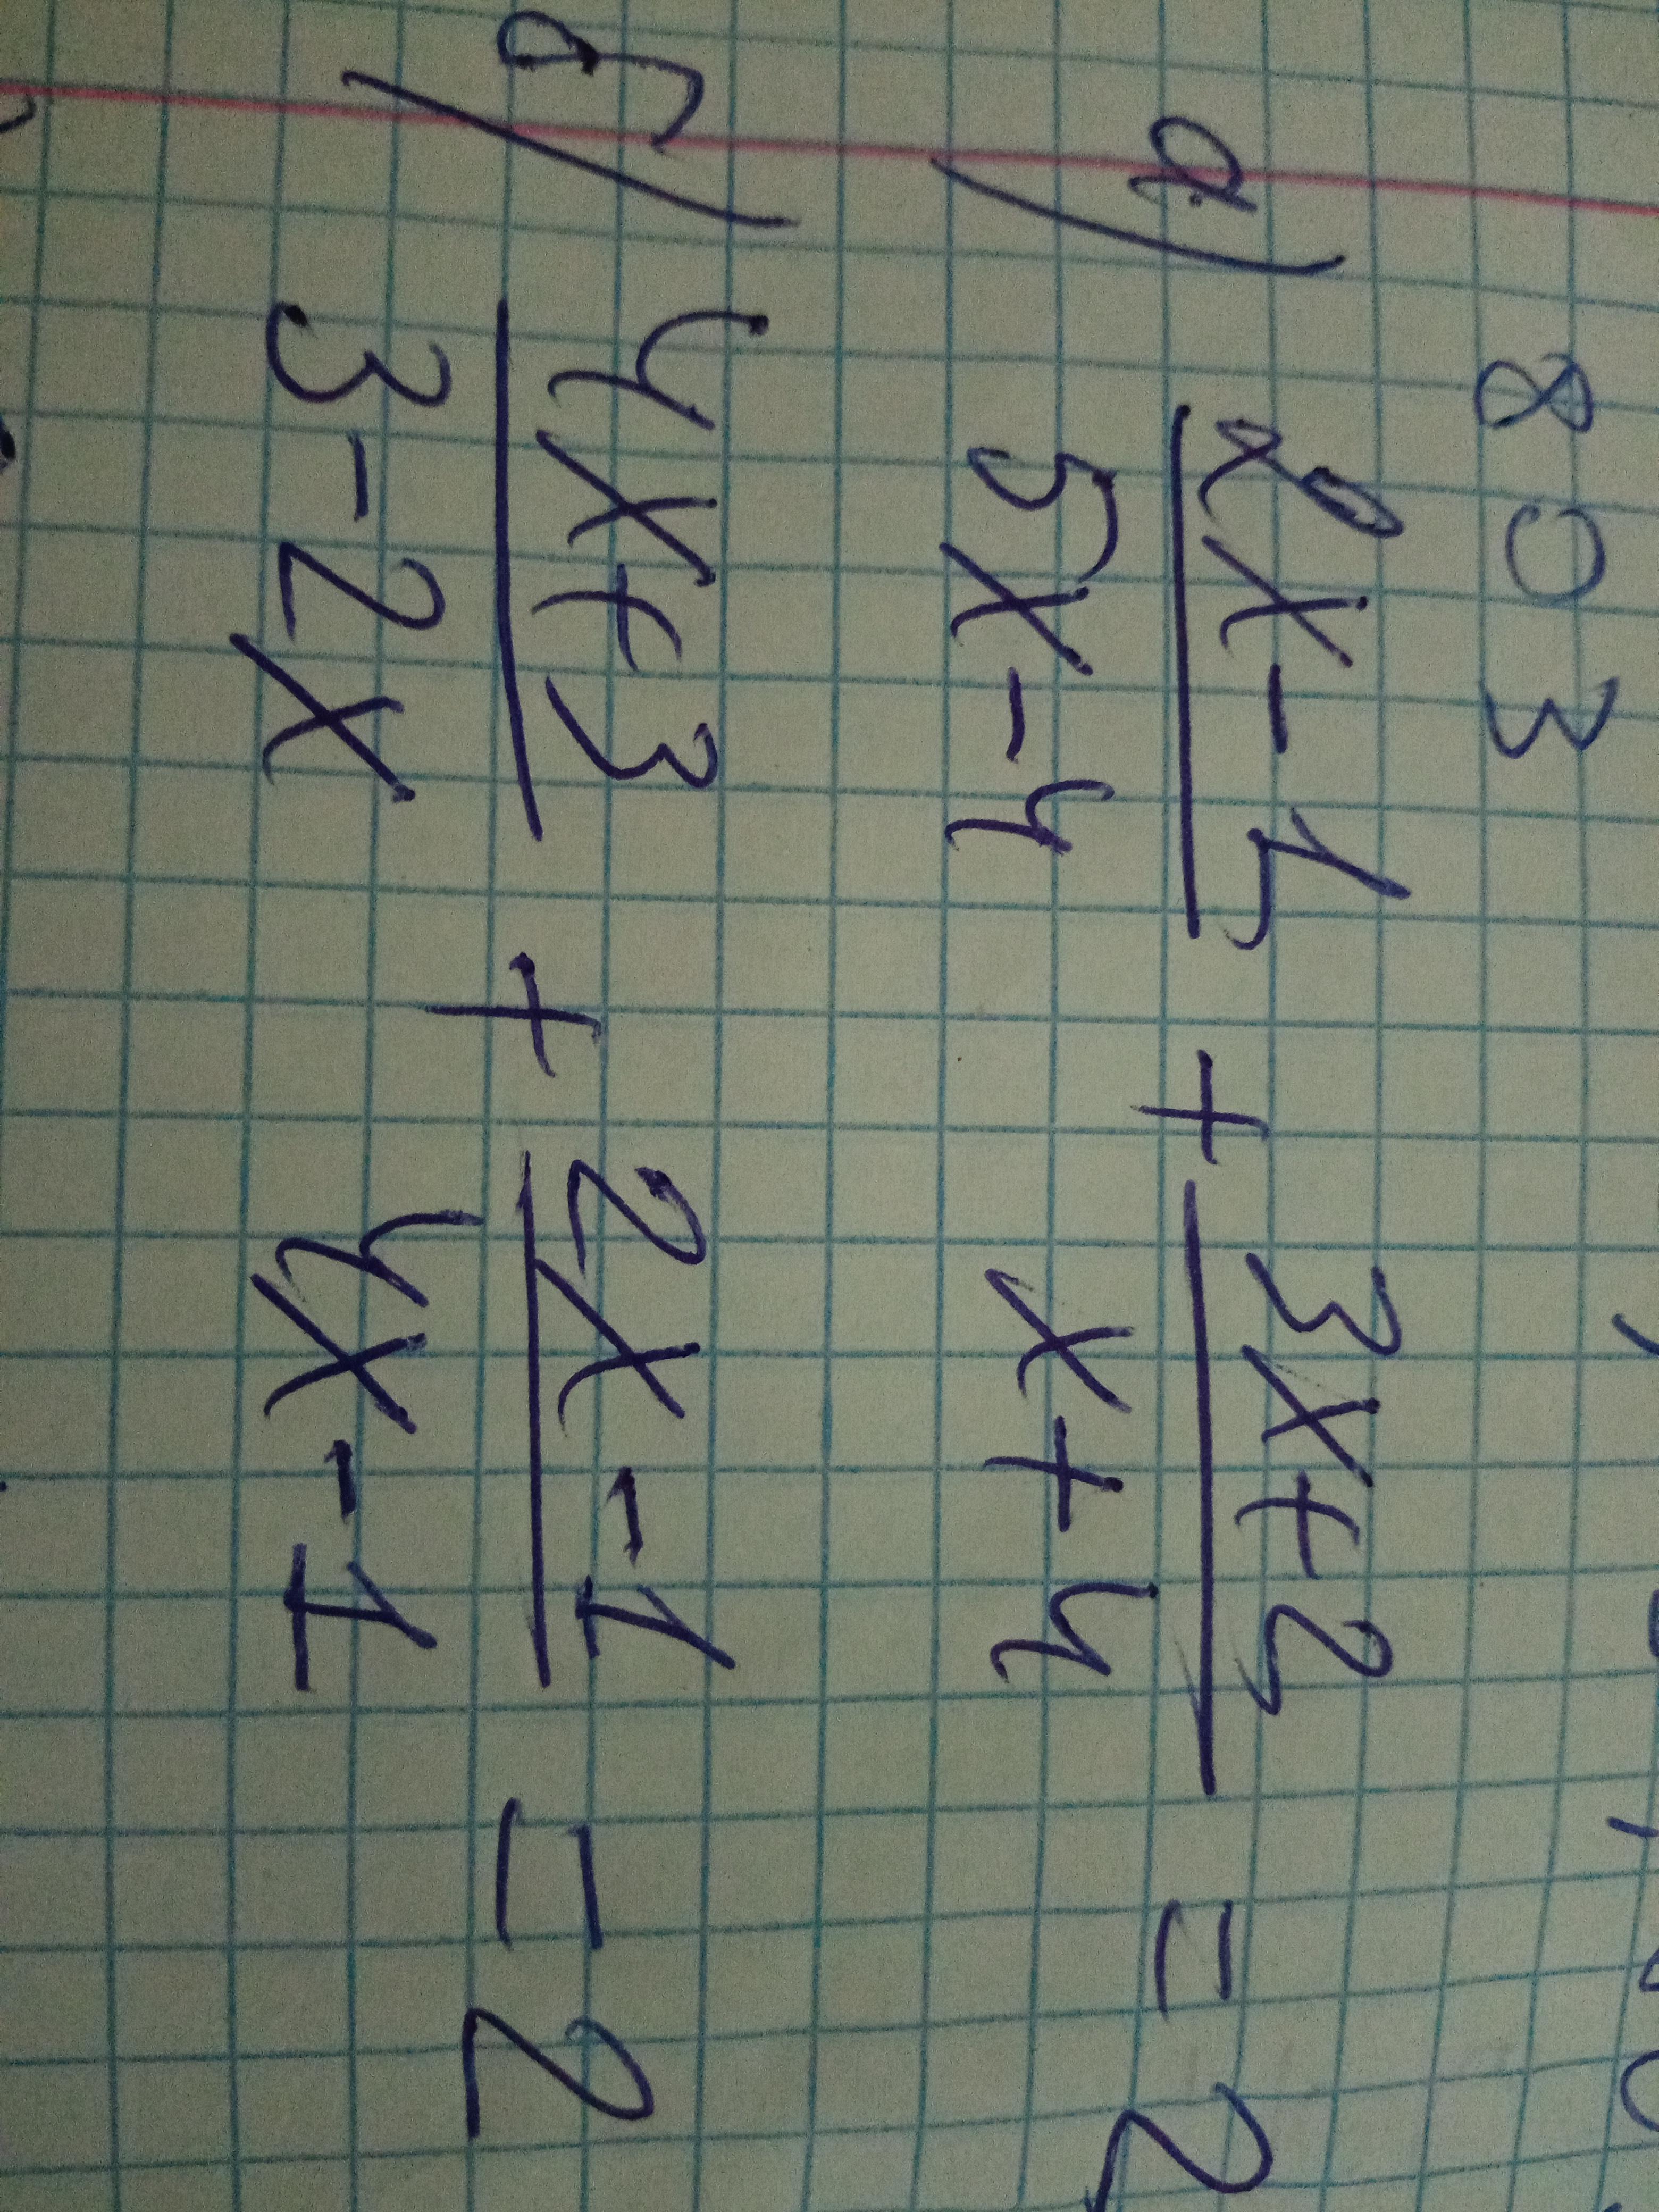 803
а) (2x-1)/(5x-4) + (3x+2)/(x+4) = 2
б) (4x+3)/(3-2x) + (2x-1)/(4x-1) = 2